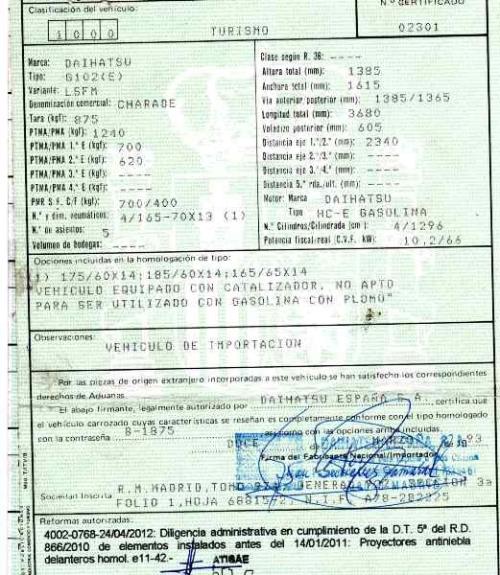 Clasificación del vehículo:
Nº CERTIFICADO
1000
TURISMO
02301
Marca: DAIHATSU
Tipo: G102(E)
Variante: LSFM
Denominación comercial: CHARADE
Tara (kgf): 875
PTMA/PMA (kgf): 1240
PTMA/PMA 1.º E (kgf): 700
PTMA/PMA 2.º E (kgf): 620
PTMA/PMA 3.º E (kgf): ----
PTMA/PMA 4.º E (kgf): ----
PMR S.F. C/F (kgf): 700/400
N.º y dim. neumáticos: 4/165-70X13 (1)
N.º de asientos: 5
Volumen de bodegas: ----
Clase según R. 36: ----
Altura total (mm): 1385
Anchura total (mm): 1615
Vía anterior/posterior (mm): 1385/1365
Longitud total (mm): 3680
Voladizo posterior (mm): 605
Distancia eje 1.º/2.º (mm): 2340
Distancia eje 2.º/3.º (mm): ----
Distancia eje 3.º/4.º (mm): ----
Distancia 5.ª rda./ult. (mm): ----
Motor: Marca DAIHATSU
Tipo HC-E GASOLINA
N.º Cilindros/Cilindrada (cm³): 4/1296
Potencia fiscal/real (C.V.F. kW): 10,2/66
Opciones incluidas en la homologación de tipo:
1) 175/60X14;185/60X14;165/65X14
VEHICULO EQUIPADO CON CATALIZADOR. NO APTO
PARA SER UTILIZADO CON GASOLINA CON PLOMO"
Observaciones:
VEHICULO DE IMPORTACION
Por las piezas de origen extranjero incorporadas a este vehículo se han satisfecho los correspondientes
derechos de Aduanas.
El abajo firmante, legalmente autorizado por DAIHATSU ESPAÑA S.A., certifica que
el vehículo carrozado cuyas características se reseñan es completamente conforme con el tipo homologado
con la contraseña B-1875 así como con las opciones arriba incluidas.
DOCE MARZO 93
Firma del Fabricante Nacional/Importador
Sociedad Inscrita R.M.MADRID,TOMO GENERAL SECCION 3a
FOLIO 1,HOJA 68815/2, N.I.F. A78-202225
Reformas autorizadas:
4002-0768-24/04/2012: Diligencia administrativa en cumplimiento de la D.T. 5ª del R.D.
866/2010 de elementos instalados antes del 14/01/2011: Proyectores antiniebla
delanteros homol. e11-42.-
ATISAE